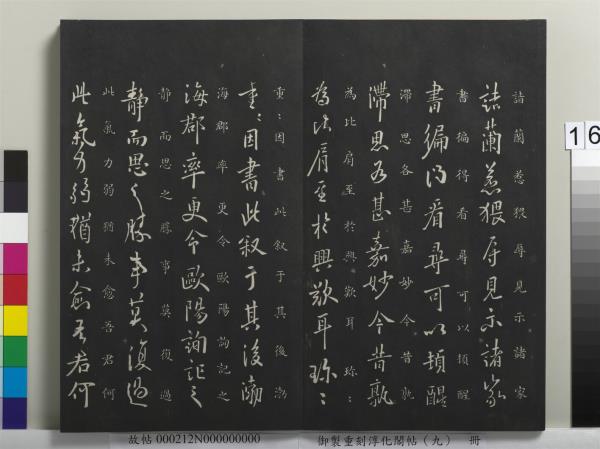 諸蘭惹猥辱見示諸家
諸蘭惹猥辱見示諸家
書徧得看尋可以頓醒
書徧得看尋可以頓醒
滯思各甚嘉妙今昔孰
滯思各甚嘉妙今昔孰
為比肩至於興歎耳 珍ミ
為比肩至於興歎耳珍ミ
重ミ因書此叙于其後渤
重ミ因書此叙于其後渤
海郡率更令歐陽詢記之
海郡率更令歐陽詢記之
静而思之勝事莫復過
静而思之勝事莫復過
此氣力弱猶未愈吾君何
此氣力弱猶未愈吾君何
故帖 000212N000000000
御製重刻淳化閣帖（九） 冊
16